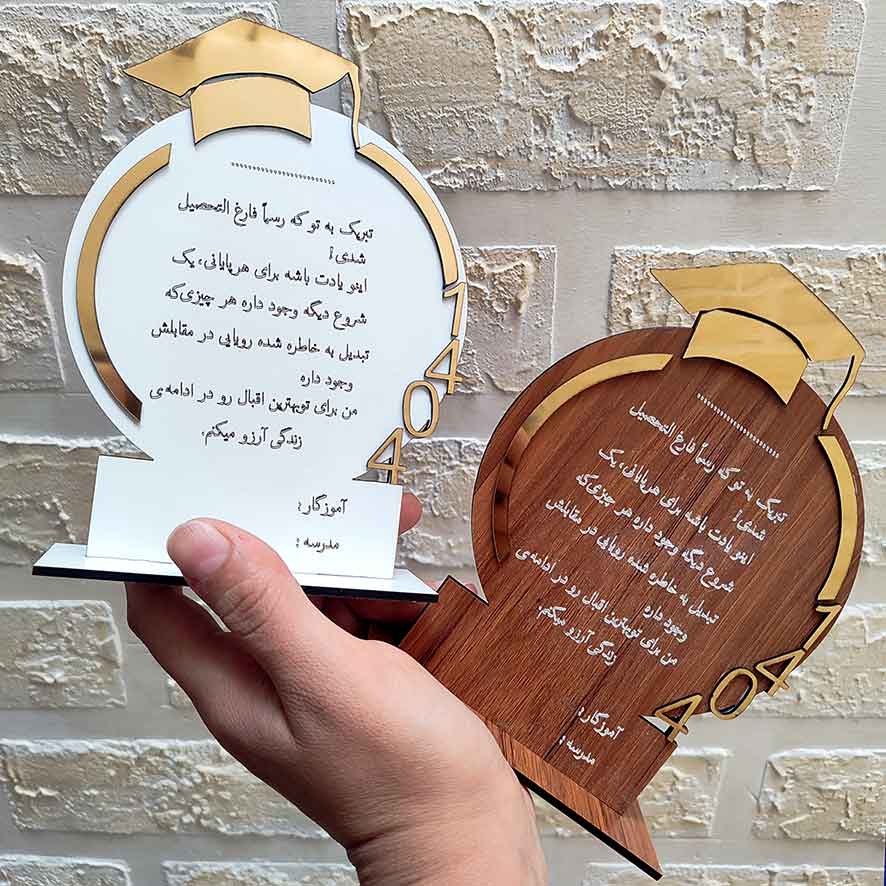 ........................
تبریک به تو که رسماً فارغ التحصیل
شدی!
اینو یادت باشه برای هر پایانی، یک
شروع دیگه وجود داره هر چیزی که
تبدیل به خاطره شده رویایی در مقابلش
وجود داره
من برای تو بهترین اقبال رو در ادامه‌ی
زندگی آرزو میکنم.
آموزگار :
مدرسه :
1404
........................
تبریک به تو که رسماً فارغ التحصیل
شدی!
اینو یادت باشه برای هر پایانی، یک
شروع دیگه وجود داره هر چیزی که
تبدیل به خاطره شده رویایی در مقابلش
وجود داره
من برای تو بهترین اقبال رو در ادامه‌ی
زندگی آرزو میکنم.
آموزگار :
مدرسه :
1404